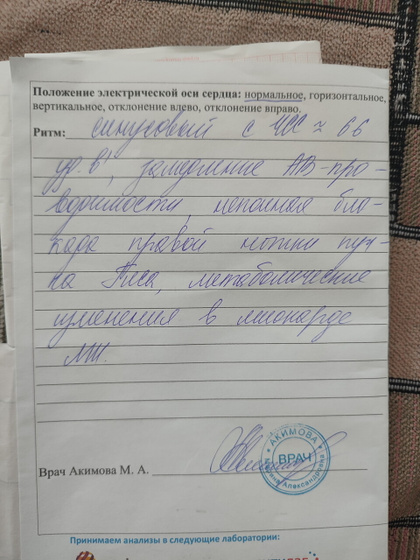 Положение электрической оси сердца: нормальное, горизонтальное,
вертикальное, отклонение влево, отклонение вправо.
Ритм: синусовый с ЧСС ≈ 66
уд. в 1', замедление АВ-про-
водимости, неполная бло-
када правой ножки пуч-
ка Гиса, метаболические
изменения в миокарде
ЛЖ.
Врач Акимова М. А.
АКИМОВА
ВРАЧ
Александровна
Принимаем анализы в следующие лаборатории: